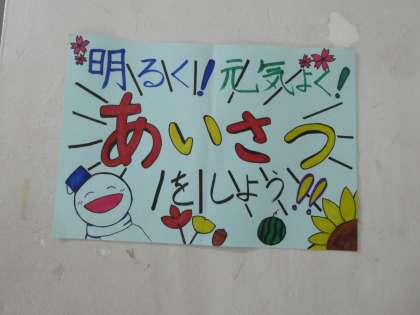 明るく!元気よく!
あいさつ
をしよう!!